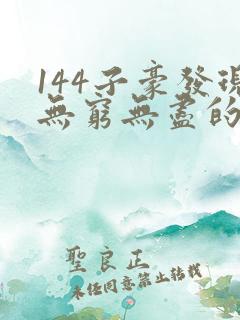 144子豪發現
無窮無盡的
聖良正
未任同意禁止转载